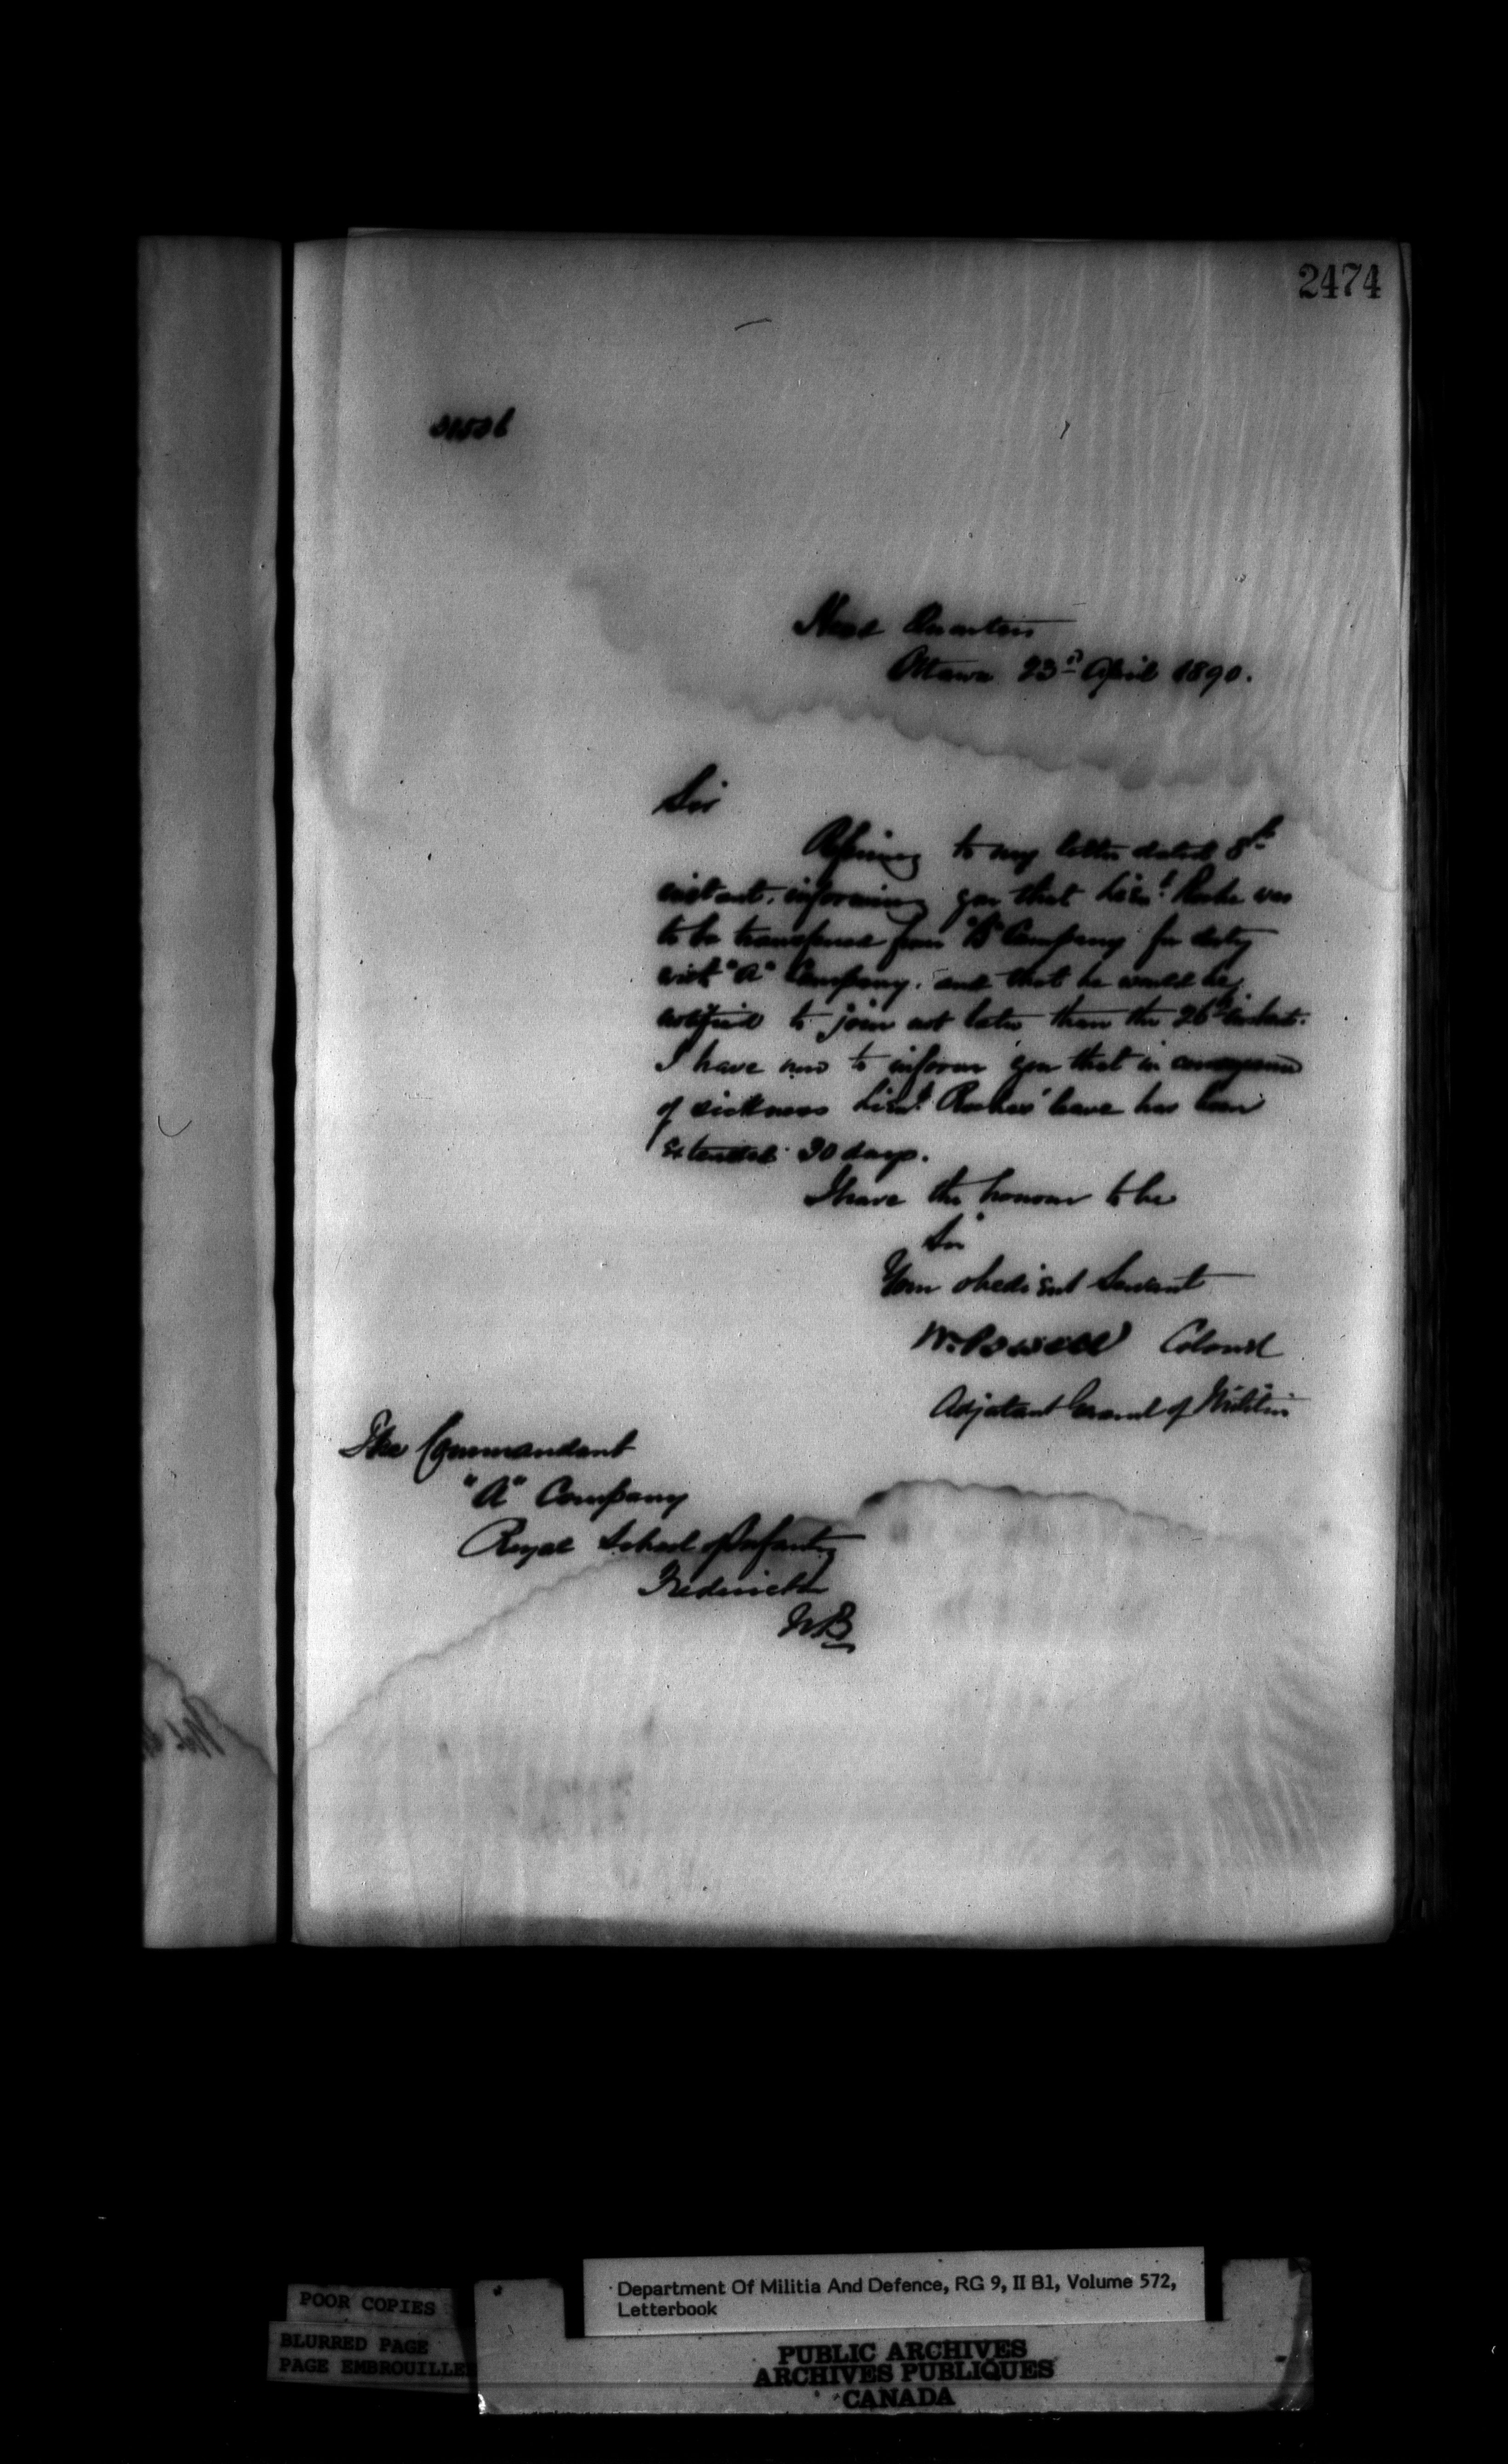 2474
Head Quarters
Ottawa 23rd April 1890.
Sir
Referring to my letter dated 8th
instant, informing you that Lieut. was
to be transferred from "B" Company for duty
with "A" Company, and that he would be
notified to join not later than the 26th instant.
I have now to inform you that in consequence
of sickness Lieut. leave has been
extended 30 days.
I have the honour to be
Sir
Your obedient Servant
W. Powell Colonel
Adjutant General of Militia
The Commandant
"A" Company
Royal School of Infantry
Fredericton
NB
POOR COPIES
BLURRED PAGE
PAGE EMBROUILLEE
Department Of Militia And Defence, RG 9, II B1, Volume 572,
Letterbook
PUBLIC ARCHIVES
ARCHIVES PUBLIQUES
CANADA